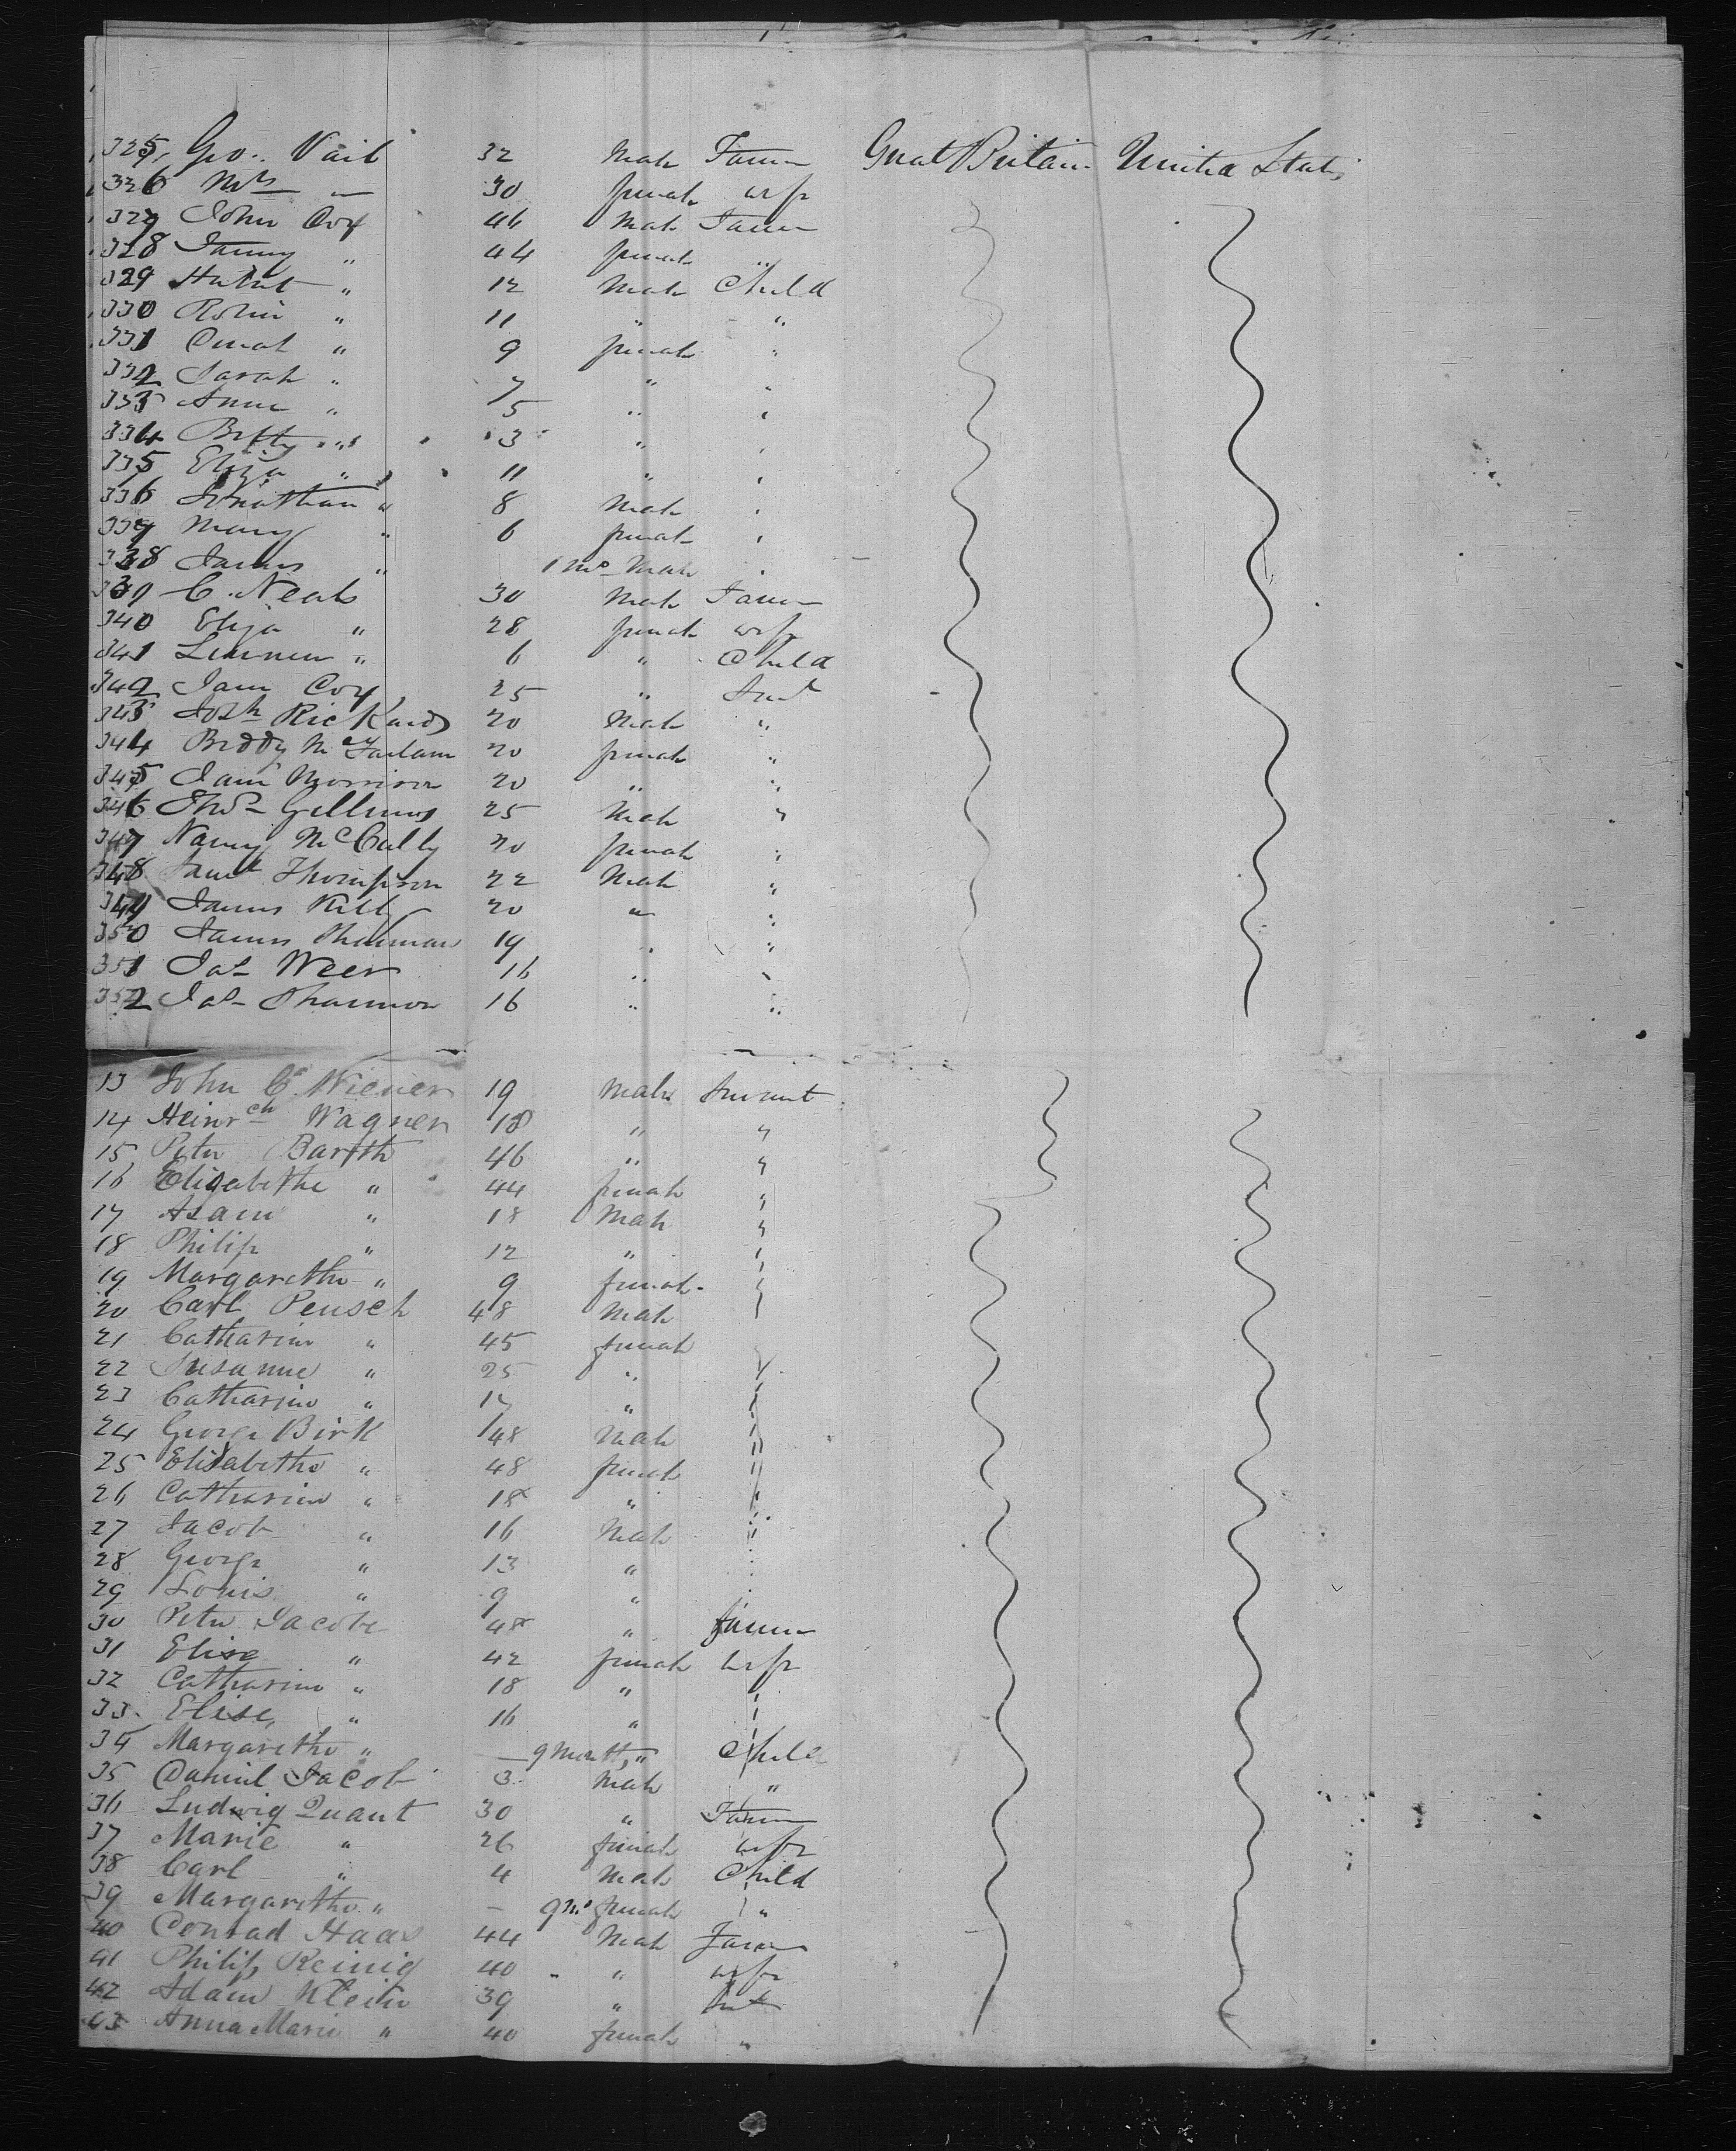 325 Geo. Vail 32 Male Farmer Great Britain United States
326 Mrs — 30 female wife
327 John Coy 46 Male Farmer
328 Fanny " 44 female "
329 " 12 Male Child
330 Robin " 11 " "
331 " 9 female "
332 Sarah " 7 " "
333 Anne " 5 " "
334 Betty " 3 " "
335 Eliza " 11 " "
336 Jonathan " 8 Male "
337 Mary " 6 female "
338 James " 1 mo Male "
339 C. Neals 30 Male Farmer
340 Eliza " 28 female wife
341 " 6 " Child
342 Jane Coy 25 " Servt
343 Josh Rickards 20 Male "
344 Biddy McFarlane 20 female "
345 Jane Morrison 20 " "
346 Thos Gillums 25 Male "
347 Nancy McCully 20 female "
348 Saml Thompson 22 Male "
349 James Kelly 20 " "
350 James 19 " "
351 Jas Weer 16 " "
352 Jas Shannon 16 " "
13 John Cs Wiener 19 Male Servant
14 Heinrch Wagner 18 " "
15 Peter Barth 46 " "
16 Elisabethe " 44 female "
17 Adam " 18 Male "
18 Philip " 12 " "
19 Margarethe " 9 female "
20 Carl Peusch 48 Male
21 Catharine " 45 female
22 Susanne " 25 " "
23 Catharine " 17 " "
24 George Birk 48 Male "
25 Elisabethe " 48 female "
26 Catharine " 18 " "
27 Jacob " 16 Male "
28 George " 13 "
29 Louis " 9 "
30 Peter Jacobe 48 " farmer
31 Elise " 42 female wife
32 Catharine " 18 " "
33 Elise " 16 " "
34 Margarethe " — 9 Months " Child
35 Daniel Jacob 3 Male "
36 Ludwig Quant 30 " Farmer
37 Marie " 26 female wife
38 Carl " 4 Male Child
39 Margarethe " — 9 mo female "
40 Conrad Haas 44 Male Farmer
41 Philip Reinig 40 " wife
42 Adam Klein 39 "
43 Anna Marie " 40 female "